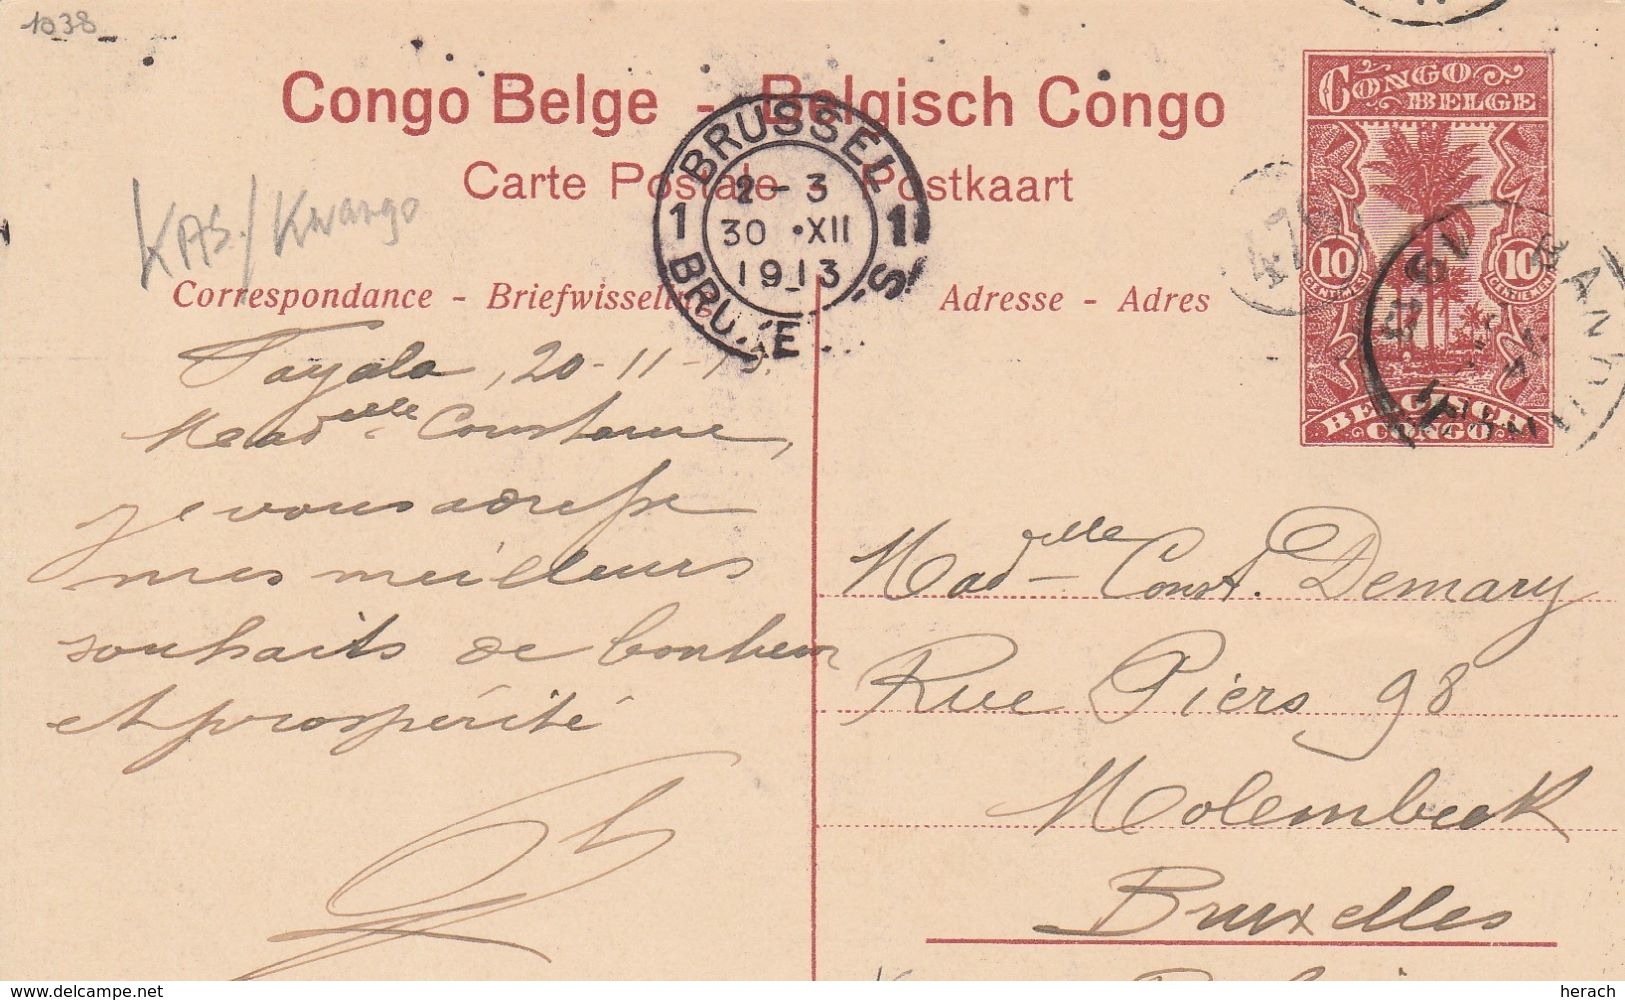 1038
Congo Belge - Belgisch Congo
Carte Postale - Postkaart
KAS./Kwango
BRUSSEL
2-3
30 •XII
1913
1 1
BRUXE S
CONGO
BELGE
10 10
CENTIMES CENTIEMEN
BELGISCH
CONGO
BANANA
Correspondance - Briefwisseling
Adresse - Adres
Tayala, 20-11-13.
Madelle Constance,
je vous adresse
mes meilleurs
souhaits de bonheur
et prospérité
Madelle Const. Demary
Rue Piers 98
Molembeek
Bruxelles
www.delcampe.net
herach